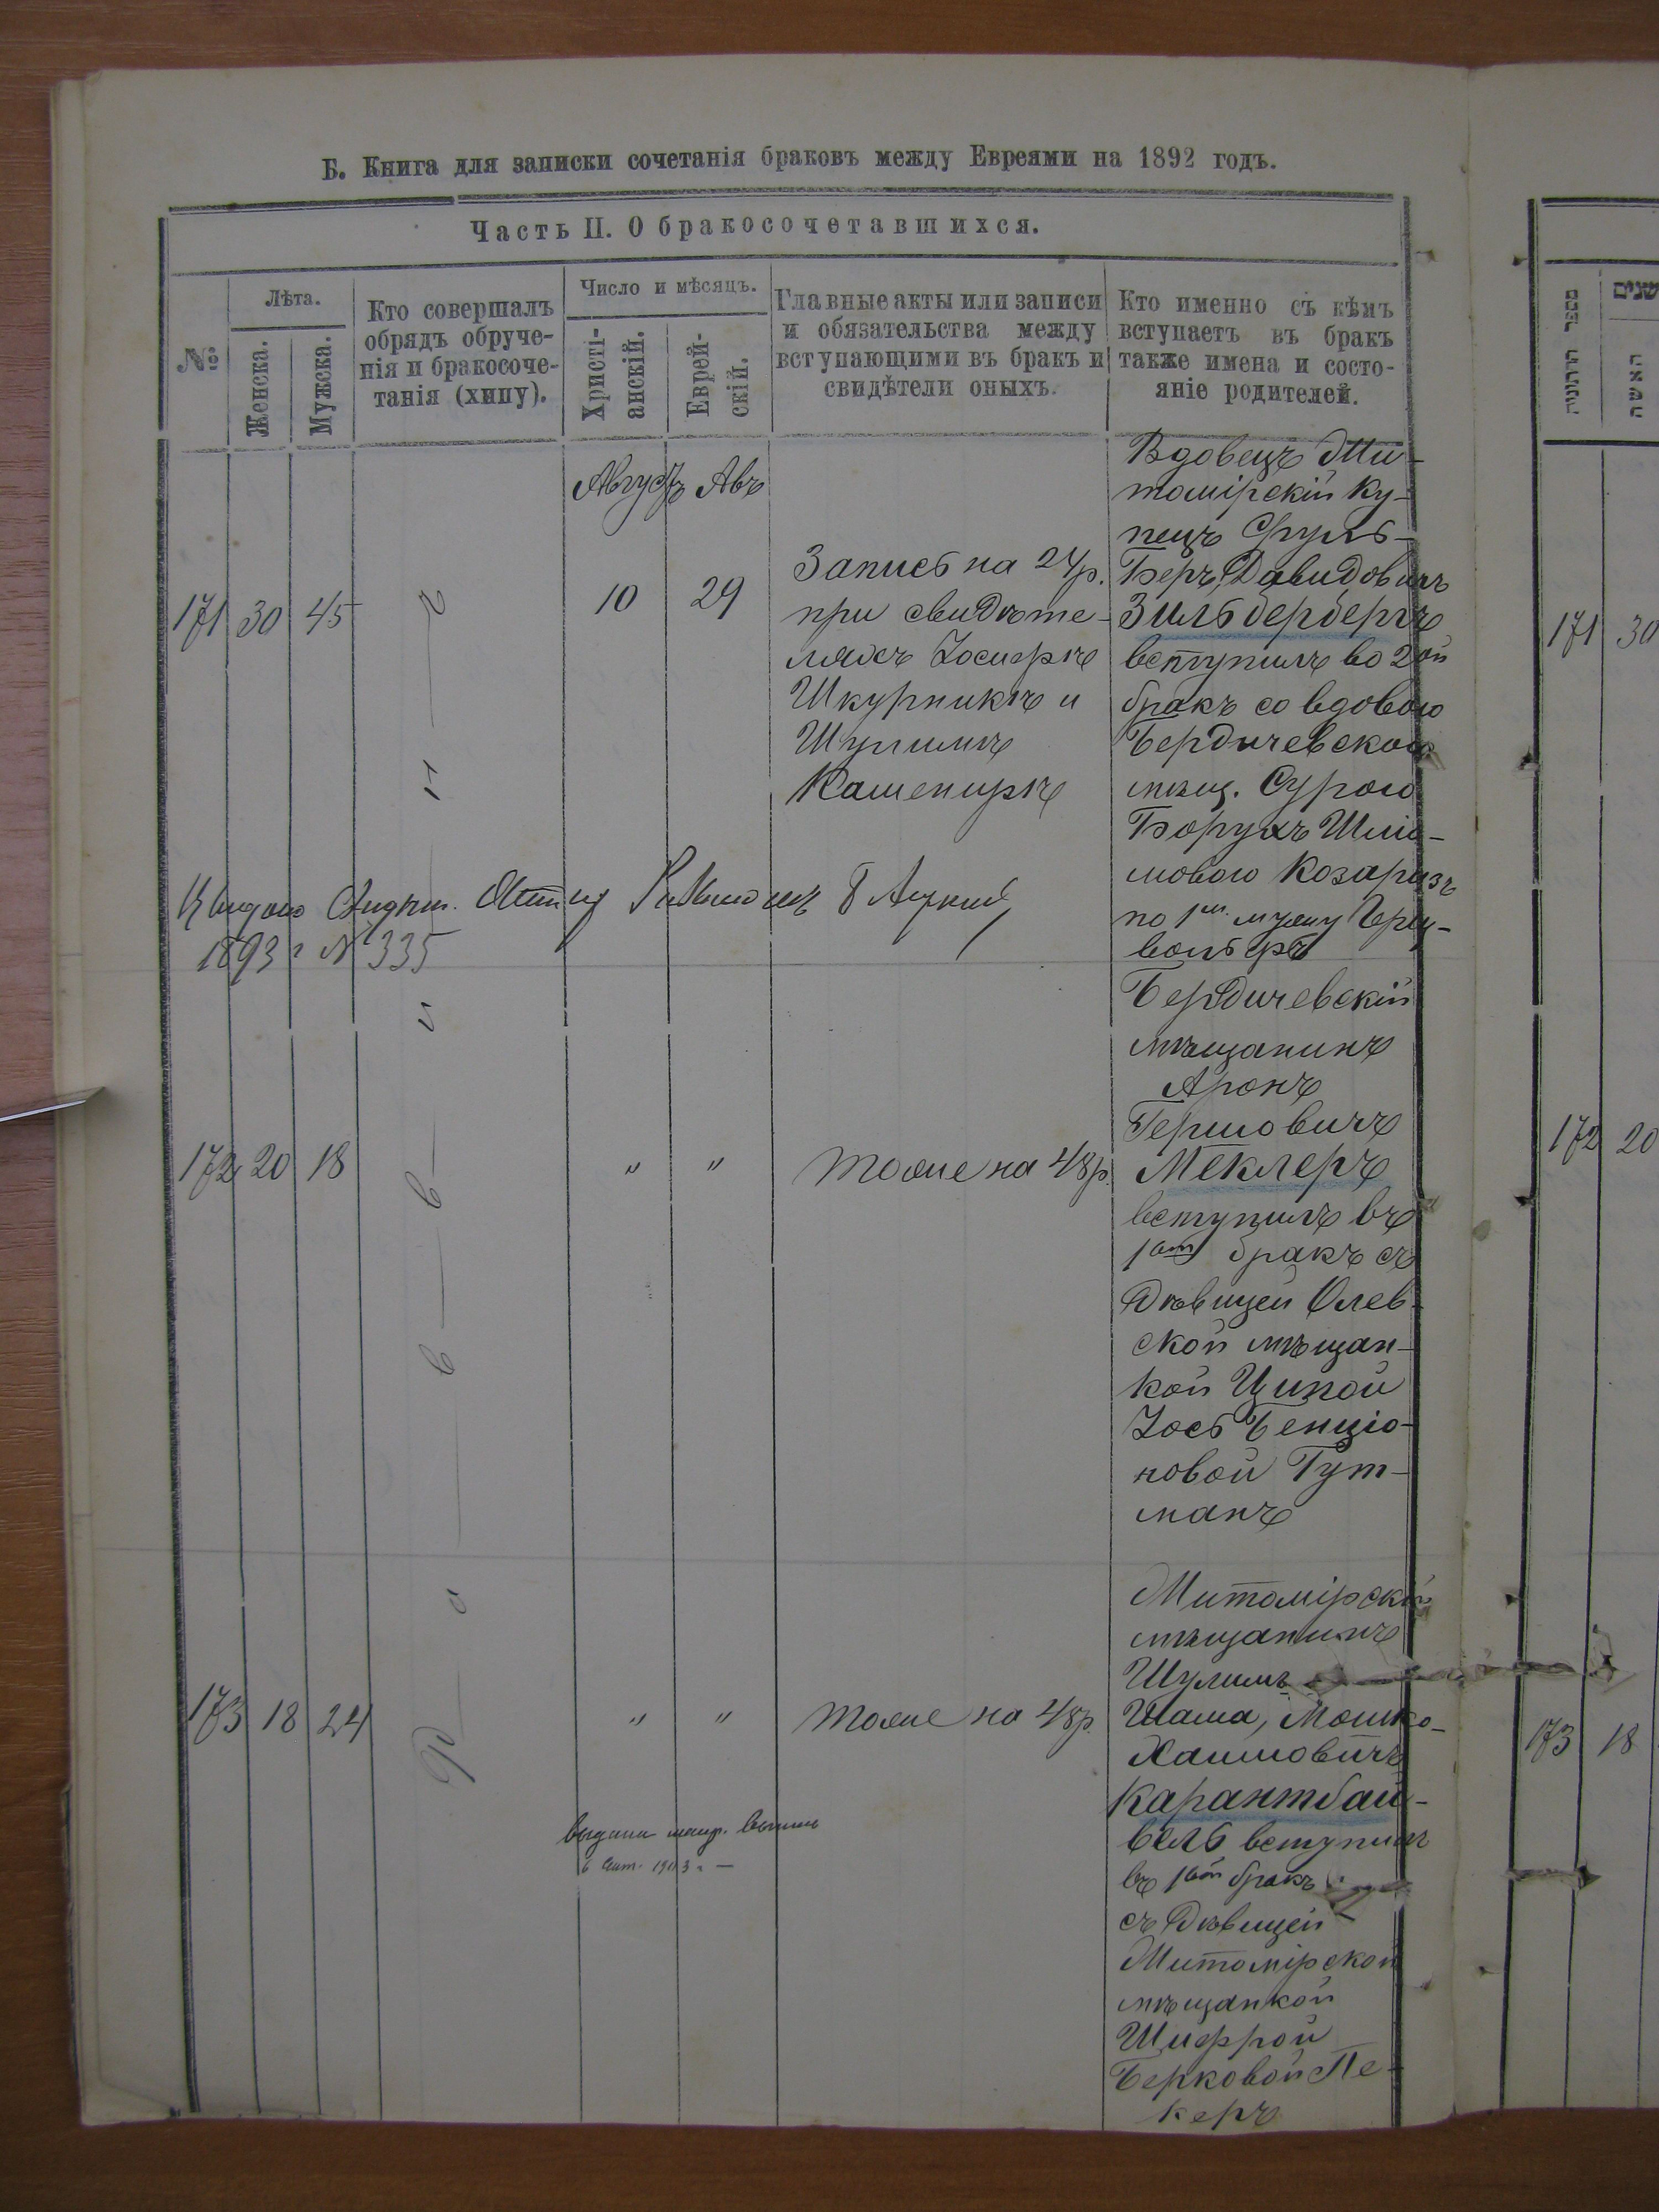 Б. Книга для записки сочетанія браковъ между Евреями на 1892 годъ.
Часть II. О бракосочетавшихся.
№
Лѣта.
Женска.
Мужска.
Кто совершалъ
обрядъ обруче-
нія и бракосоче-
танія (хипу).
Число и мѣсяцъ.
Христі-
анскій.
Еврей-
скій.
Главные акты или записи
и обязательства между
вступающими въ бракъ и
свидѣтели оныхъ.
Кто именно съ кѣмъ
вступаетъ въ бракъ
также имена и состо-
яніе родителей.
Августъ Авъ
171 30 45
10 29
Запись на 24 р.
при свидѣте-
ляхъ Іосифѣ
Шкурникѣ и
Шулимѣ
Кашепирѣ
Вдовецъ Жи-
томірскій Ку-
пецъ Сруль-
Беръ Давидовичъ
Зильбербергъ
вступилъ во 2ой
бракъ со вдовою
Бердичевскою
мѣщ. Сурою
Борухъ Шліо-
мовою Козаризъ
по 1м. мужу Герц-
вольфъ
1893 г № 335
172 20 18
" "
тоже на 48 р.
Бердичевскій
мѣщанинъ
Аронъ
Гершовичъ
Меклеръ
вступилъ въ
1ый бракъ съ
дѣвицей Олев-
ской мѣщан-
кой Ципой
Іось Бенціо-
новой Гут-
манъ
173 18 24
" "
тоже на 48 р.
Житомірскій
мѣщанинъ
Шулимъ
Шама, Мошко-
Хаимовичъ
Карантбай-
вель вступилъ
въ 1ый бракъ
съ дѣвицей
Житомірской
мѣщанкой
Шифрой
Берковой Пе-
керъ
מספר הדתוניה
שנים
האשה
171 30
172 20
173 18